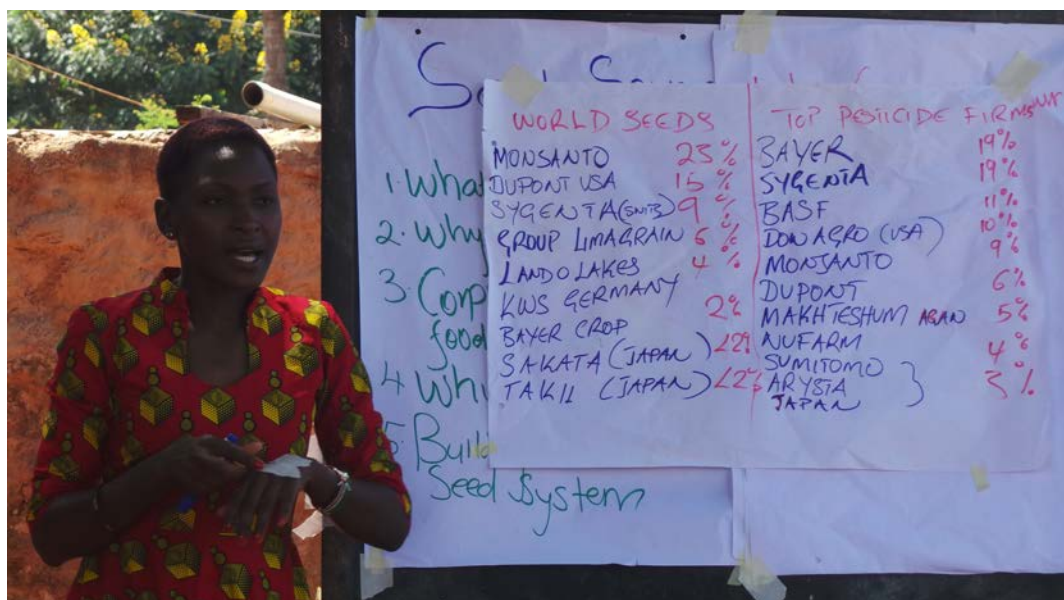 1. What
2. Why
3. Corp
food
4 Why
5. Build
Seed System
WORLD SEEDS
MONSANTO 23%
DUPONT USA 15%
SYGENTA (SNTS) 9%
GROUP LIMAGRAIN 6%
LAND O LAKES 4%
KWS GERMANY
BAYER CROP 2%
SAKATA (JAPAN) <2%
TAKII (JAPAN) <2%
TOP PESTICIDE FIRMS
BAYER 19%
SYGENTA 19%
BASF 11%
DOW AGRO (USA) 10%
MONSANTO 9%
DUPONT 6%
MAKHTESHUM AGAN 5%
NUFARM
SUMITOMO 4%
ARYSTA } 3%
JAPAN